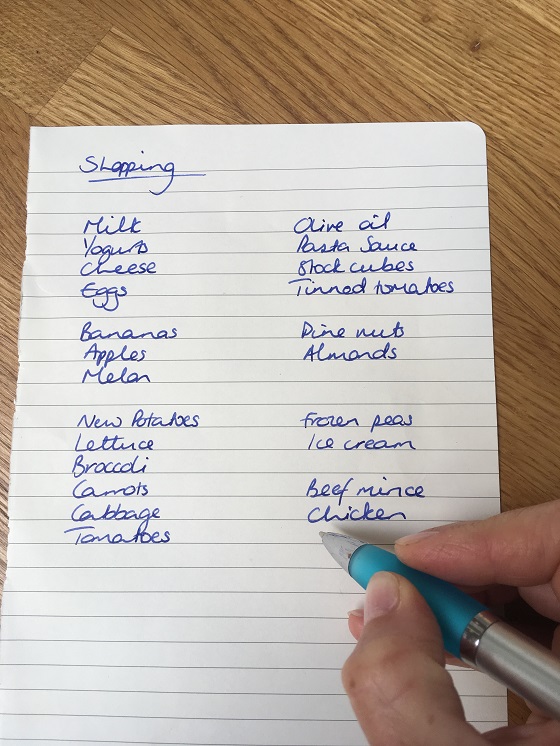 Shopping
Milk
Yogurts
Cheese
Eggs
Bananas
Apples
Melon
New Potatoes
Lettuce
Broccoli
Carrots
Cabbage
Tomatoes
Olive oil
Pasta Sauce
Stock cubes
Tinned tomatoes
Pine nuts
Almonds
Frozen peas
Ice cream
Beef mince
Chicken